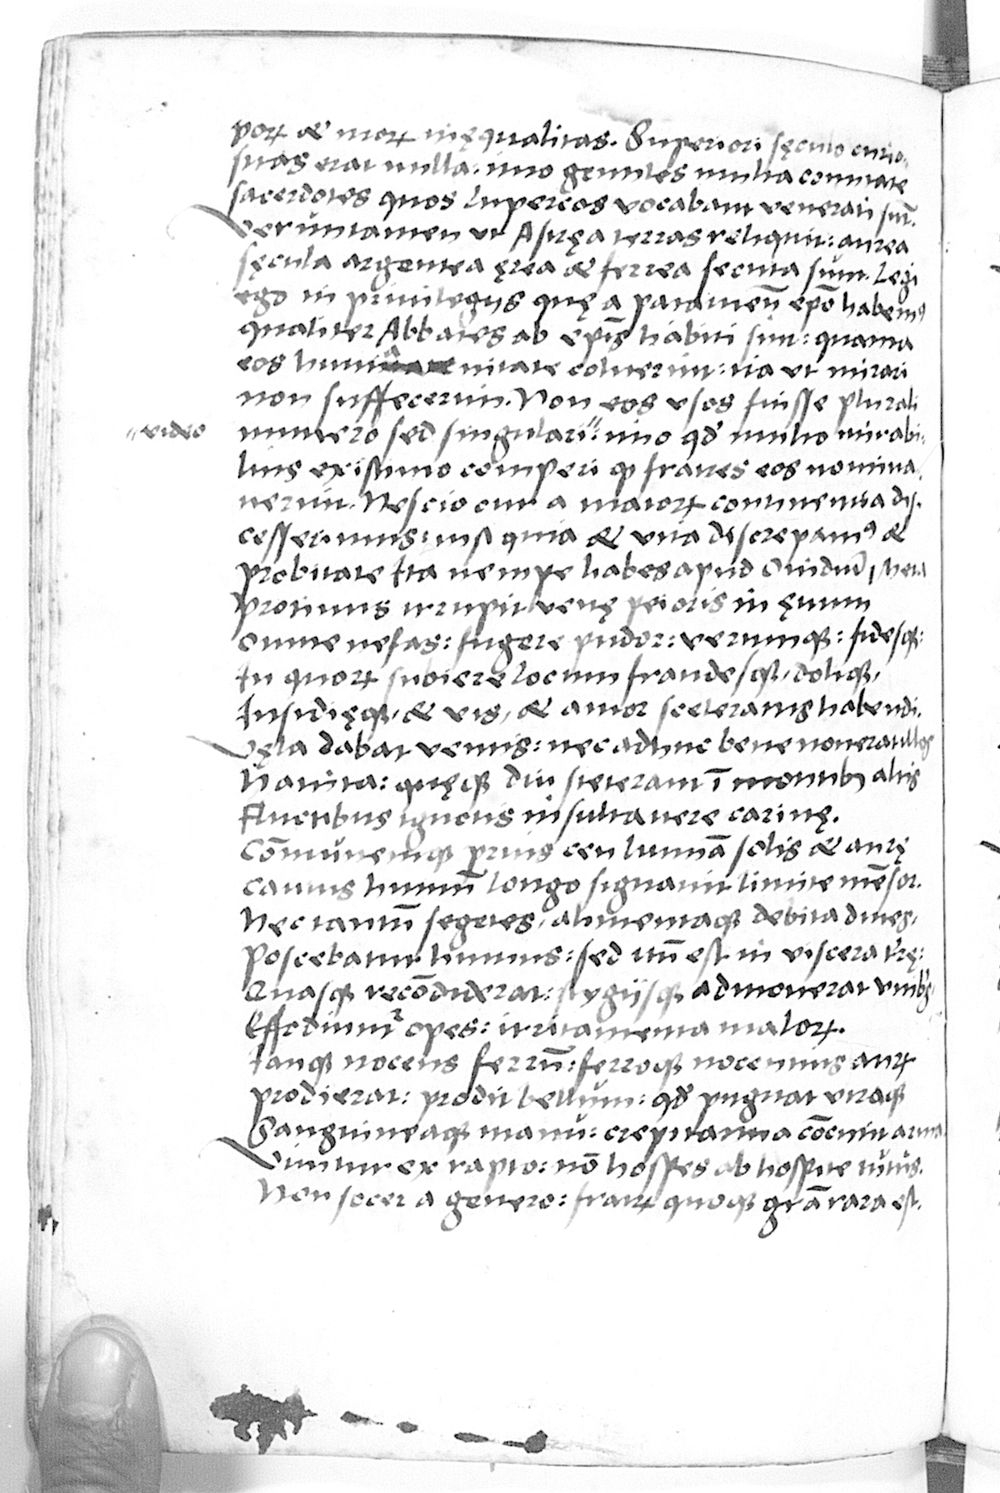 porꝝ & morꝝ inęqualitas. Superiori sęculo curio-
sitas erat nulla: imo gentiles multa comitate
sacerdotes quos lupercos vocabant venerati sūt.
Veruntamen ut Astręa terras reliquit: aurea
sęcula argentea ęrea & ferrea secuta sunt. Legi
ego in priuilegijs quę a patauien̄ epō habemꝰ
qualiter Abbates ab ep̄is habiti sint: quanta
eos humanitate coluerint: ita ut mirari
non suffecerim. Non eos usos fuisse plurali
numero sed singulari": imo qd' multo mirabi-
"video
lius existimo comperi ꝙ fratres eos nomina-
uerint. Nescio cur a maiorꝝ continentia dis-
cesserimus: nisi quia & vita discrepamꝰ &
probitate Ita nempe habes apud Ouidiū
Protinus irrupit venę peioris in ęuum
Omne nefas: fugere pudor: verumqꝫ: fidesqꝫ:
In quorꝝ subiere locum fraudesqꝫ, doliqꝫ,
Insidięqꝫ, & vis, & amor sceleratus habendi.
Vęla dabat ventis: nec adhuc bene nouerat illos
Nauita: quęqꝫ diu steterant ī montibꝫ altis
Fluctibus ignotis insultauere carinę.
Cōmunemqꝫ prius ceu luminā solis & aurę
Cautus humū longo signauit limite mēsor.
Nec tantū segetes, alimentaqꝫ debita diues,
Poscebatur humus: sed itū est in viscera t'rę:
Quasqꝫ recōdiderat: stygijsqꝫ admouerat vmbris
Effodiunt' opes: irritamenta malorꝝ.
Iamqꝫ nocens ferrū: ferroqꝫ nocentius aurꝝ
prodierat: prodit bellum: qd' pugnat utroqꝫ
Sanguineaqꝫ manu: crepitantia cōcutit arma.
Viuitur ex rapto: nō hospes ab hospite tutus.
Non socer a genero: fratrꝝ quoqꝫ gr̄a rara est.